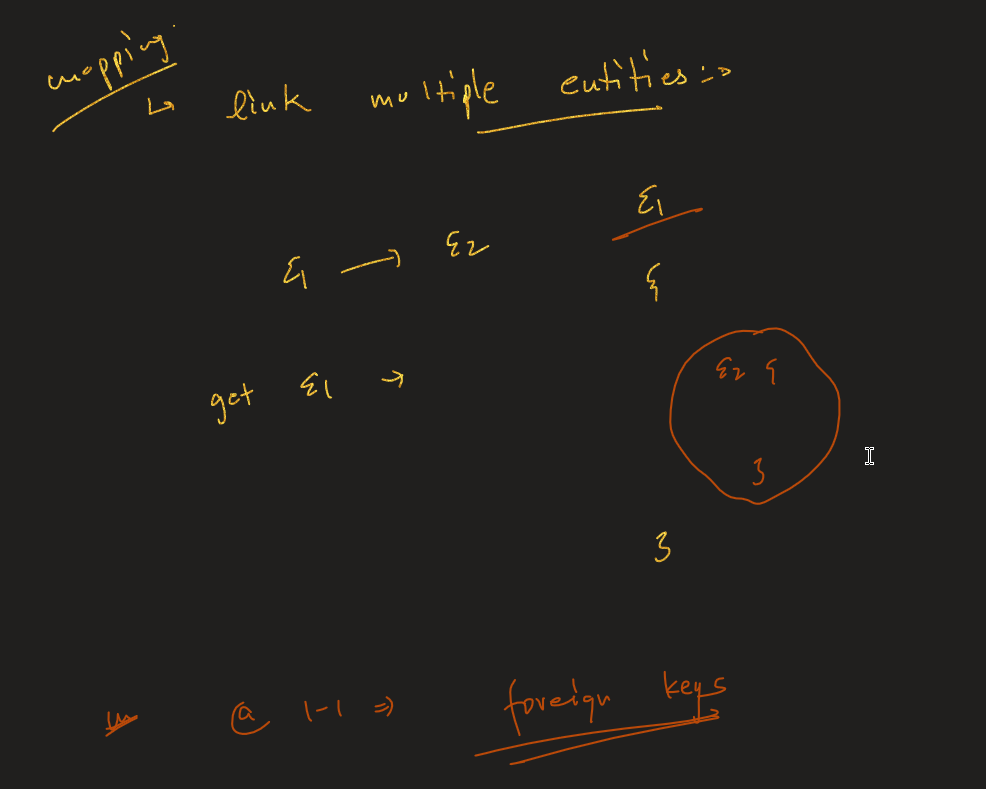 mapping
↳ link multiple entities :->
E1
E1 → E2
{
E2 {
get E1 →
}
}
@ 1-1 => foreign keys